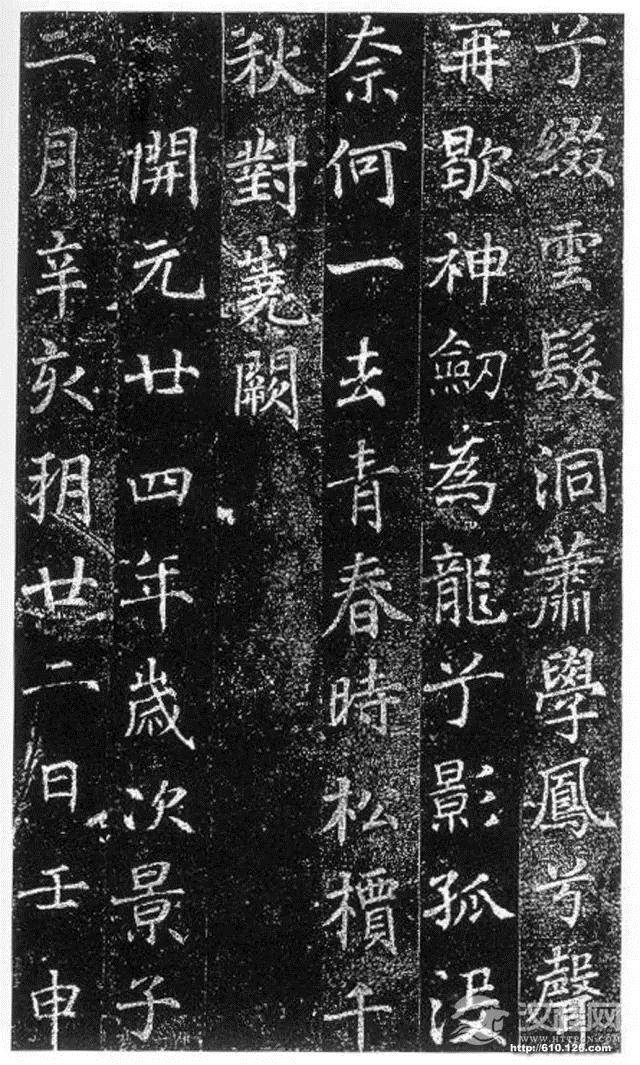 兮綴雲髮洞蕭學鳳兮聲
再歇神劒為龍兮影孤沒
奈何一去青春時松檟千
秋對嵬闕
開元廿四年歲次景子
二月辛亥朔廿二日壬申
HTTPCN.COM
http://610.126.com/